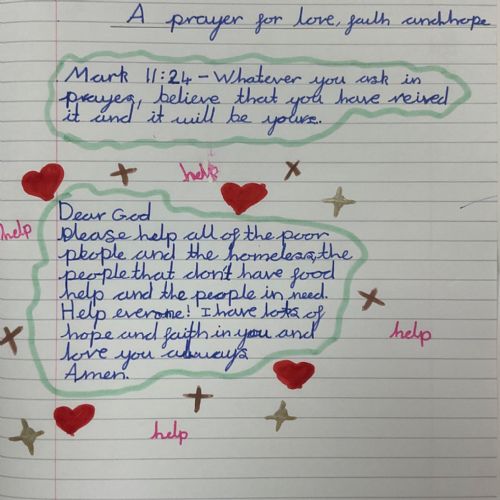 A prayer for love, faith and hope
Mark 11:24 - Whatever you ask in
prayer, believe that you have reived
it and it will be yours.
help
help
Dear God
please help all of the poor
people and the homeless, the
people that don't have food
help and the people in need.
Help everone! I have lots of
hope and faith in you and
love you always
Amen.
help
help